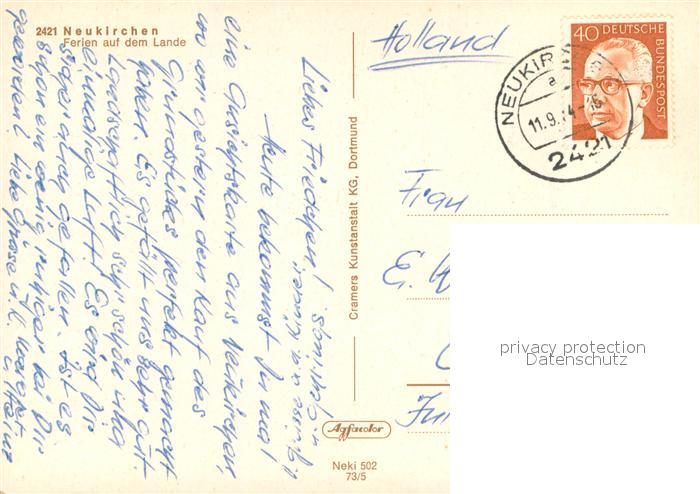 2421 Neukirchen
Ferien auf dem Lande
Liebes Friedchen!
Heute bekommst Du mal
eine Ansichtskarte aus Neukirchen,
wo wir gestern den Kauf des
Grundstückes perfekt gemacht
haben. Es gefällt uns sehr gut.
Landschaftlich sehr schön und
einmalige Luft! Es wird Dir
sicher auch gefallen. Ist es
schon ein wenig ruhiger bei Dir
geworden? Liebe Grüsse u. K.
u. Heinz
Cramers Kunstanstalt KG, Dortmund
Agfacolor
Neki 502
73/5
Holland
40 DEUTSCHE
BUNDESPOST
NEUKIR
a
11.9.74-16
2421
Frau
E.
privacy protection
Datenschutz